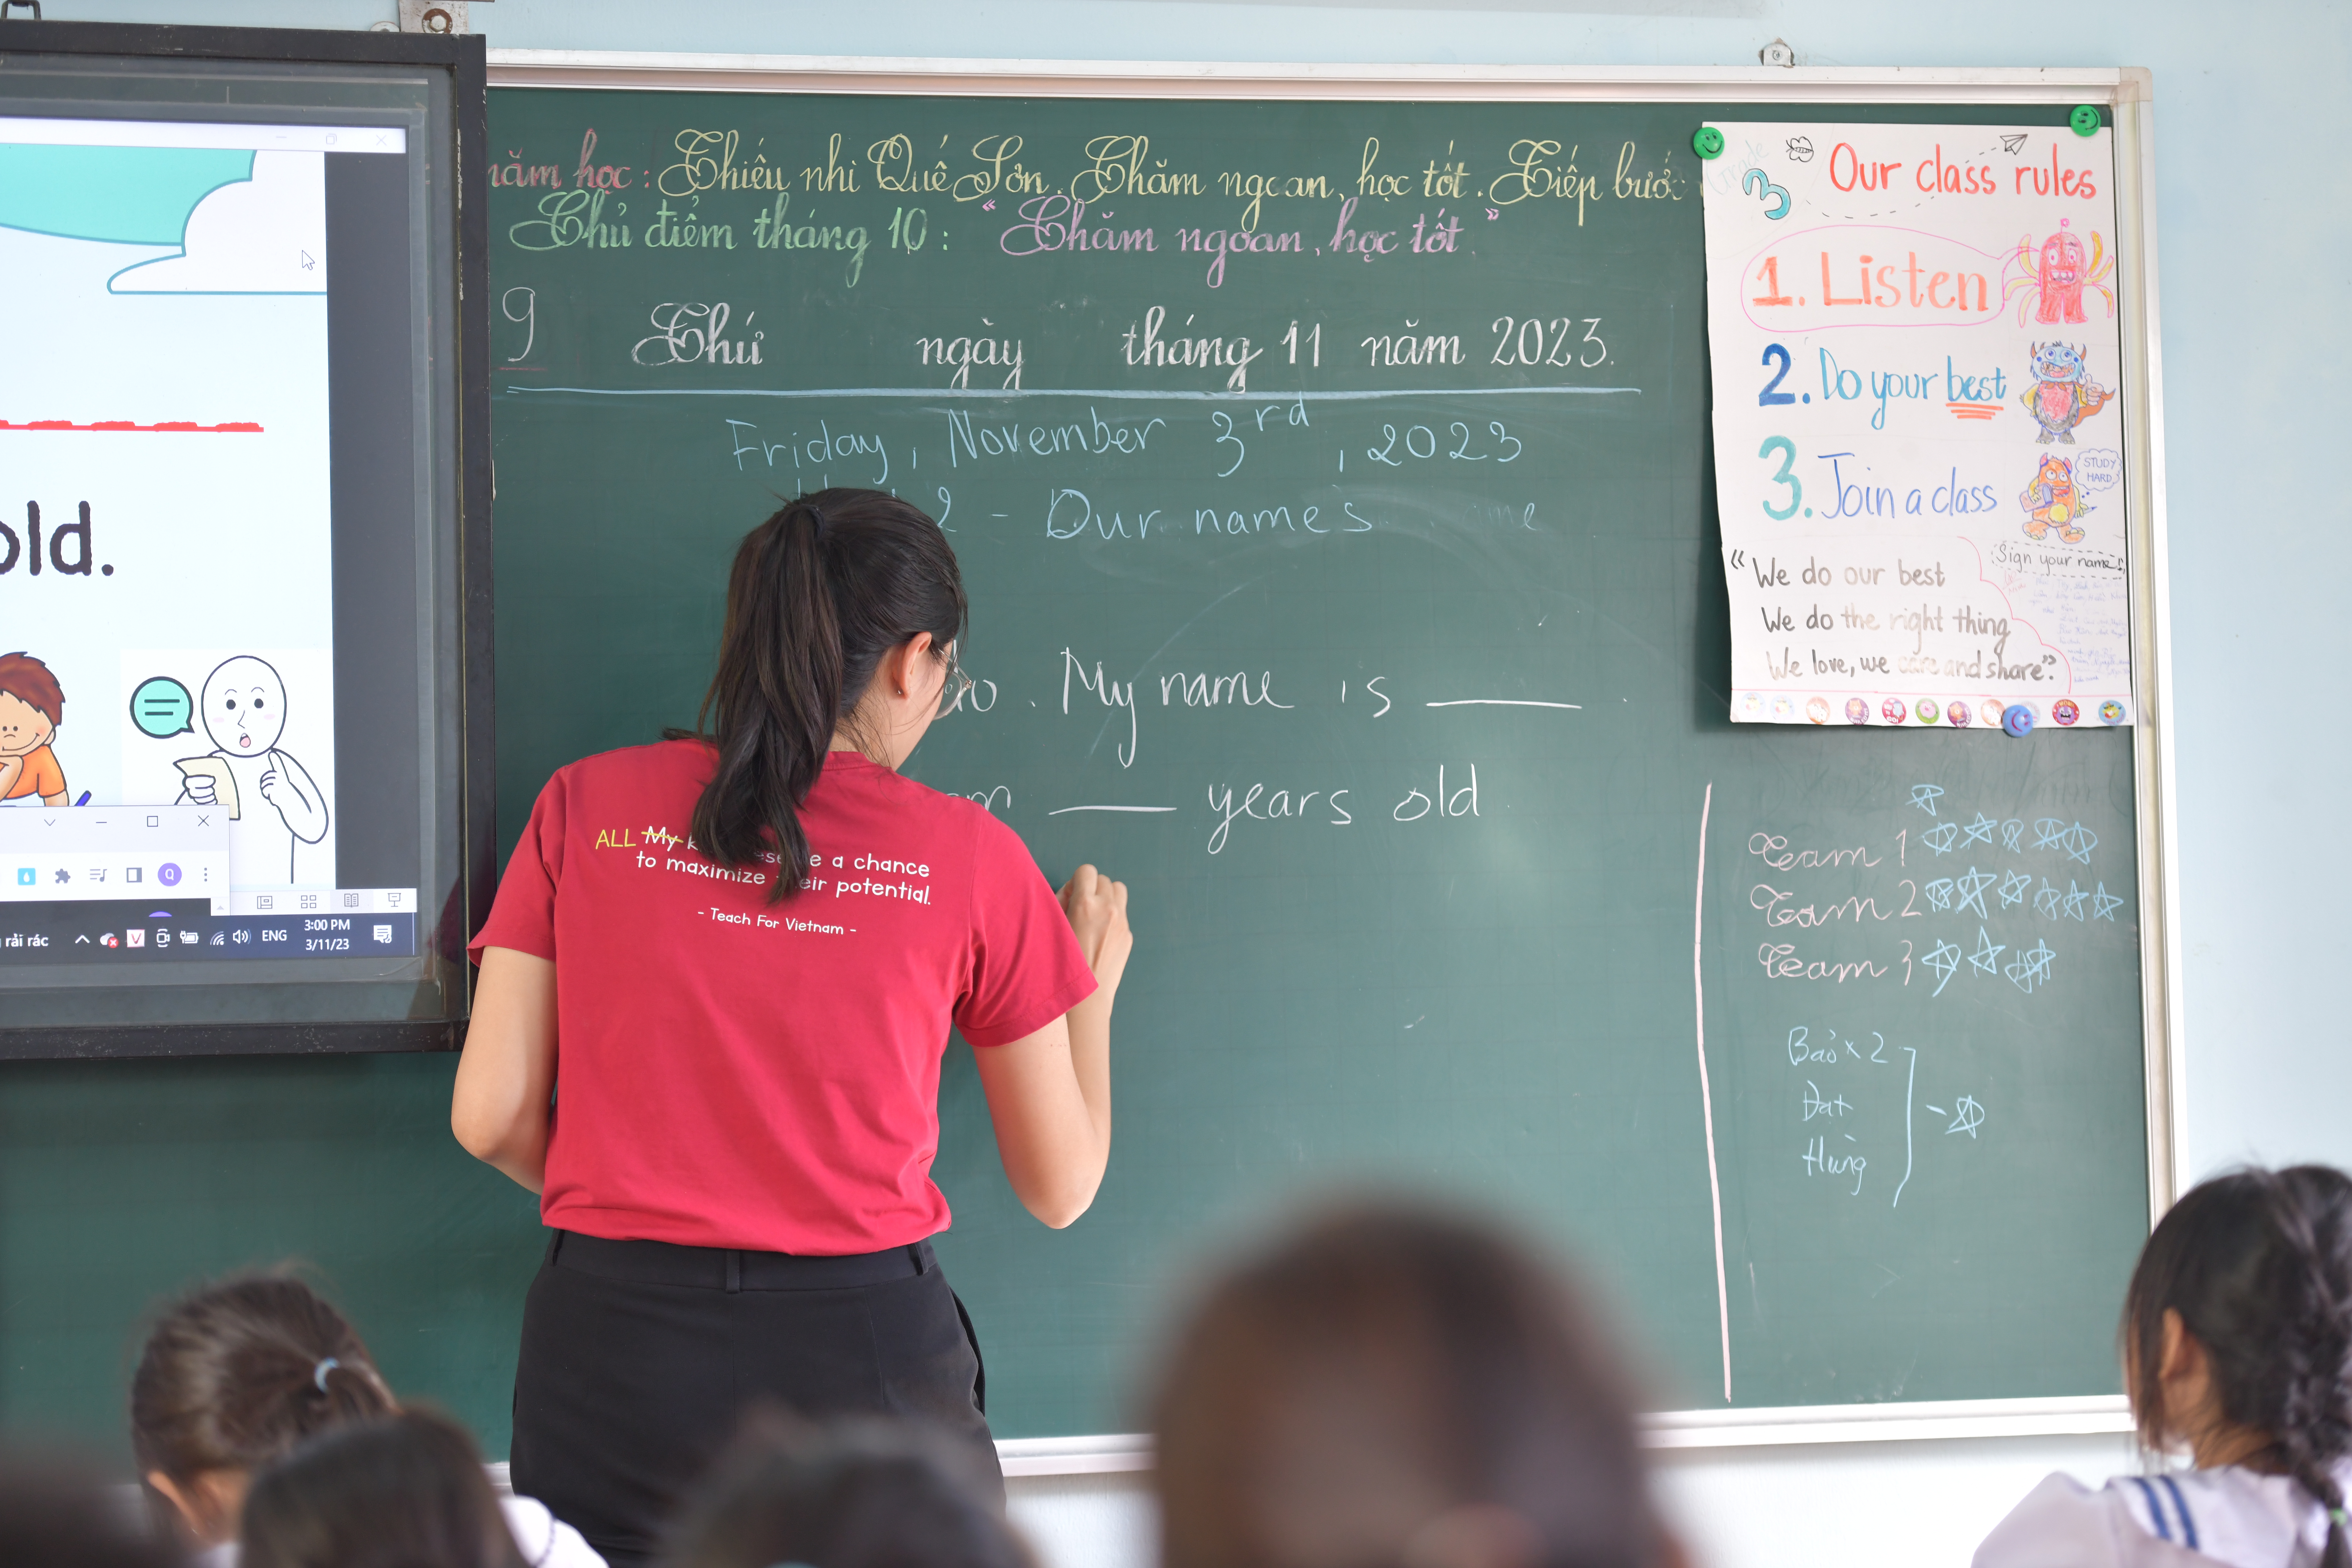 old.
rải rác
ENG
3:00 PM
3/11/23
năm học: Thiếu nhi Quế Sơn. Chăm ngoan, học tốt. Tiếp bước
Chủ điểm tháng 10: "Chăm ngoan, học tốt."
9 Thứ ngày tháng 11 năm 2023.
Friday, November 3rd, 2023
2 - Our names
. My name is ____ .
____ years old
ALL My
a chance
to maximize their potential.
- Teach For Vietnam -
Grade 3
Our class rules
1. Listen
2. Do your best
3. Join a class
STUDY
HARD
Sign your name
"We do our best
We do the right thing
We love, we care and share"
Team 1
Team 2
Team 3
Bảo x 2
Đạt
Hùng